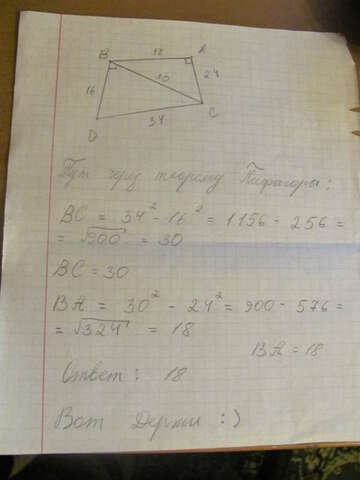 18
B
A
30
24
16
C
34
D
Тут чрез теорему Пифагоры:
BC = 34² - 16² = 1156 - 256 =
= √900 = 30
BC = 30
BA = 30² - 24² = 900 - 576 =
= √324 = 18
BA = 18
Ответ: 18
Вот Держи :)